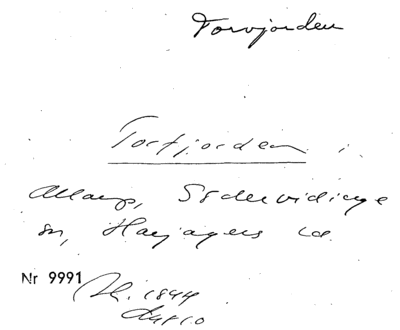 Torvjorden
Torfjorden
Allarp, Södervidinge
sn, Harjagers hd.
Nr 9991
Sk. 1844